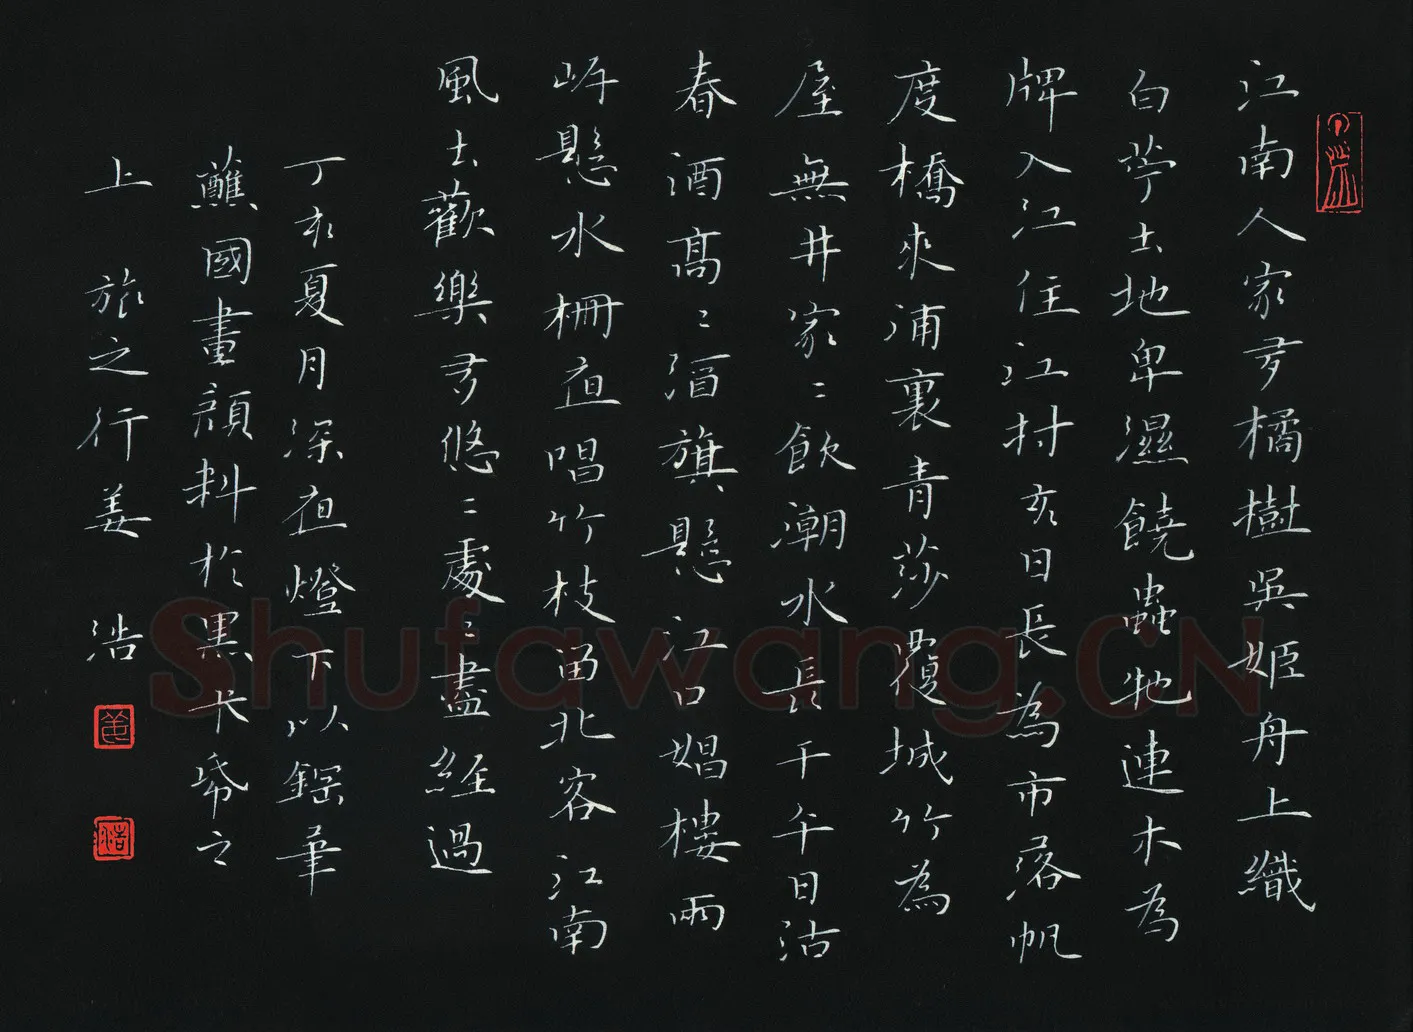 江南人家多橘樹吳姬舟上織
白苧土地卑濕饒蟲牠連木為
牌入江住江村亥日長為市落帆
度橋來浦裏青莎覆城竹為
屋無井家〻飲潮水長干午日沽
春酒酒高高〻酒旗懸江口娼樓兩
岍懸水柵夜唱竹枝留北客江南
風土歡樂多悠〻處〻盡經過
丁亥夏月深夜燈下以鋼筆
蘸國畫顏料於黑卡紙之
上 旅之行姜 浩
Shufawang.CN